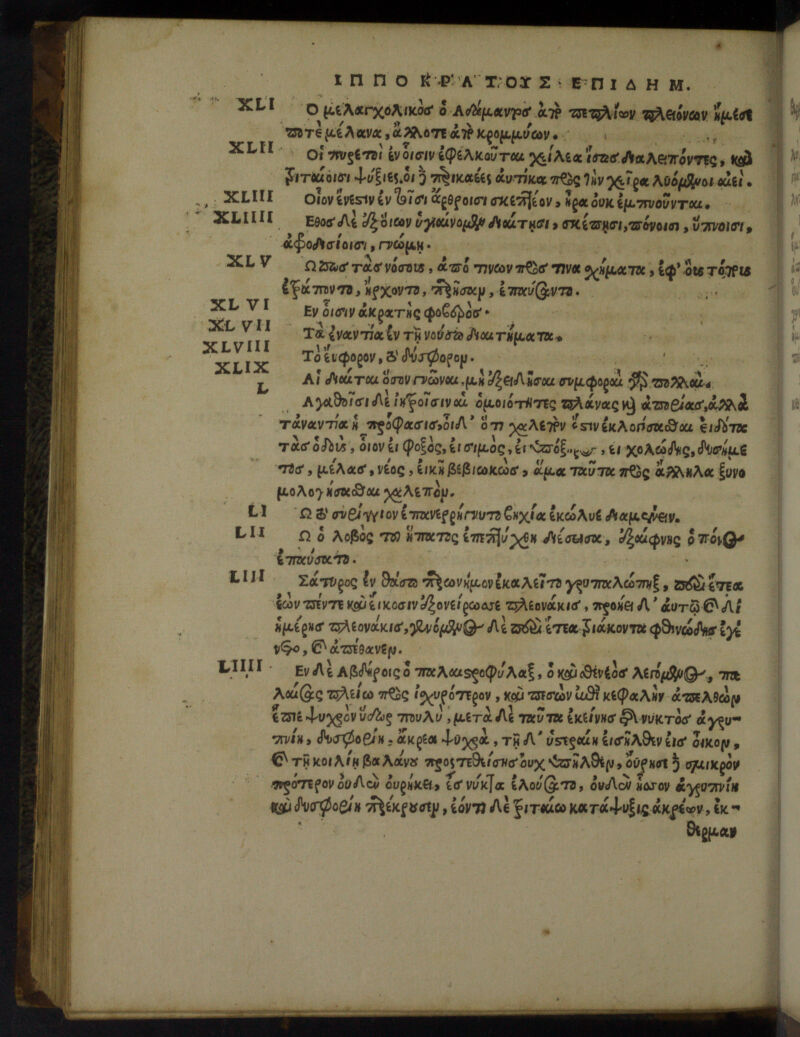 ΙΠΠΟΚΡΑΤΟΥΣ ΕΠΙΔΗΜ.
XLI Ο μελαγχολικὸς ὁ
πότε μέλανα, ἄλλοτε ἀπὸ κρομμύων.
XLII Οἱ πυρετοὶ ἐν οἷσιν ἐφέλκοῦται χείλεα ἴσως διαλείποντες, καὶ
τριταίοισι ψύξιες. οἱ δὲ αὐτίκα πρὸς τὴν χεῖρα λυόμενοι αἰεί.
XLIII Οἷον ἔνεστιν ἐν τοῖσι ἄρθροισι σκεπτέον, ἦρα οὐκ ἐμπνοῦνται.
XLIIII Ἔθος δὲ ἐξ οἵων ὑγιαίνομεν διαίτησι, σκέπησι, πόνοισι, ὕπνοισι,
ἀφροδισίοισι, γνώμῃ.
XLV Ὅπως τὰς νόσους, ἀπό τινων πρός τινα σχήματα, ἐφ' οἷς τόποις
ἐξάπτοντο, ἤρχοντο, ἐπαύοντο.
XLVI Ἐν οἷσιν ἀκρατὴς φοβερός.
XLVII Τὰ ἐναντία ἐν τῇ νούσῳ διαιτήματα.
XLVIII Τὸ εὔφορον, τὸ δύσφορον.
XLIX Αἱ δίαιται ὅσον γνῶναι. μὴ συμφοραὶ
L Ἀγαθοῖσι δὲ ἰητροῖσιν αἱ ὁμοιότητες πλάνας καὶ ἀπορίας, ἀλλὰ
τἀναντία ἡ πρόφασις, οἵη δ' ὅτι χαλεπόν ἐστιν ἐκλογίσασθαι εἰδότα
τὰς ὁδούς, οἷον εἰ φοξὸς, εἰ σιμὸς, εἰ εἰ χολώδης, δυσήμε
τος, μέλας, νέος, εἰκῆ βεβιωκὼς, ἅμα ταῦτα πρὸς ἄλληλα ξυνο
μολογήσασθαι χαλεπόν.
LI Ὧι τὸ συρίγγιον ἐπανερρήγνυτο βηχία ἐκώλυε διαμένειν.
LII Ὧι ὁ λοβὸς τοῦ ἥπατος ἐπεπτύχθη διέσεισα, ἐξαίφνης ὁ πόνος
ἐπαύσατο.
LIII Σάτυρος ἐν Θάσῳ παρωνύμιον ἐκαλεῖτο γρυπαλώπηξ, περὶ ἔτεα
ἐὼν πέντε καὶ εἴκοσιν ἐξονείρωσσε πλεονάκις, προῄει δ' αὐτῷ καὶ δι'
ἡμέρης πλεονάκις, γενόμενος δὲ περὶ ἔτεα τριάκοντα φθινώδης ἐγέ
νετο, καὶ ἀπέθανεν.
LIIII Ἐν δὲ Ἀβδήροις ὁ παλαιστροφύλαξ, ὁ καὶ λεγόμενος, πα
λαίσας πλείω πρὸς ἰσχυρότερον, καὶ πεσὼν ἐπὶ κεφαλὴν ἀπελθὼν
ἔπιε ψυχρὸν ὕδωρ πουλὺ, μετὰ δὲ ταῦτα ἐκείνης τῆς νυκτὸς ἀγρυ-
πνίη, δυσφορίη, ἄκρεα ψυχρὰ, τῇ δ' ὑστεραίῃ εἰσῆλθεν εἰς οἶκον,
καὶ τῇ κοιλίῃ βαλάνου προστεθείσης οὐχ ὑπῆλθεν, οὔρησε δὲ σμικρὸν
πρότερον οὐδὲν οὐρήκει, ἐς νύκτα ἐλούσατο, οὐδὲν ἧσσον ἀγρυπνίη
καὶ δυσφορίη παρέκρουσεν, ἐόντι δὲ τριταίῳ κατάψυξις ἀκρέων, ἐκ-
θερμαν